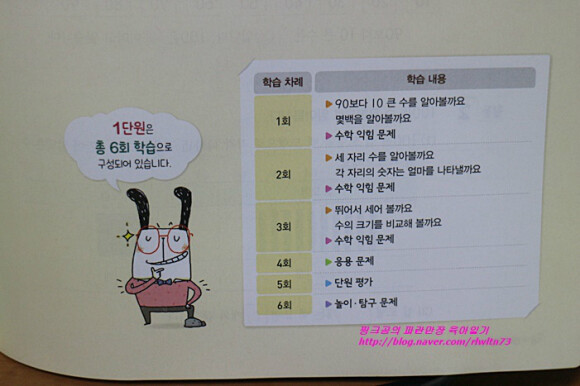 1단원은
총 6회 학습으로
구성되어 있습니다.
학습 차례
학습 내용
1회
▶ 90보다 10 큰 수를 알아볼까요
몇백을 알아볼까요
▶ 수학 익힘 문제
2회
▶ 세 자리 수를 알아볼까요
각 자리의 숫자는 얼마를 나타낼까요
▶ 수학 익힘 문제
3회
▶ 뛰어서 세어 볼까요
수의 크기를 비교해 볼까요
▶ 수학 익힘 문제
4회
▶ 응용 문제
5회
▶ 단원 평가
6회
▶ 놀이·탐구 문제
핑크곰의 파란만장 육아일기
http://blog.naver.com/rlwltn73